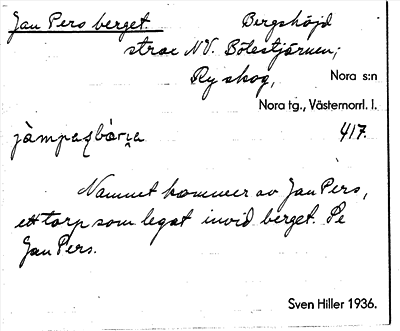 Jan Pers berget Bergshöjd
strax NV. Bölestjärnen,
Ry skog, Nora s:n
Nora tg., Västernorrl. l.
417.
Namnet kommer av Jan Pers,
ett torp som legat invid berget. Se
Jan Pers.
Sven Hiller 1936.